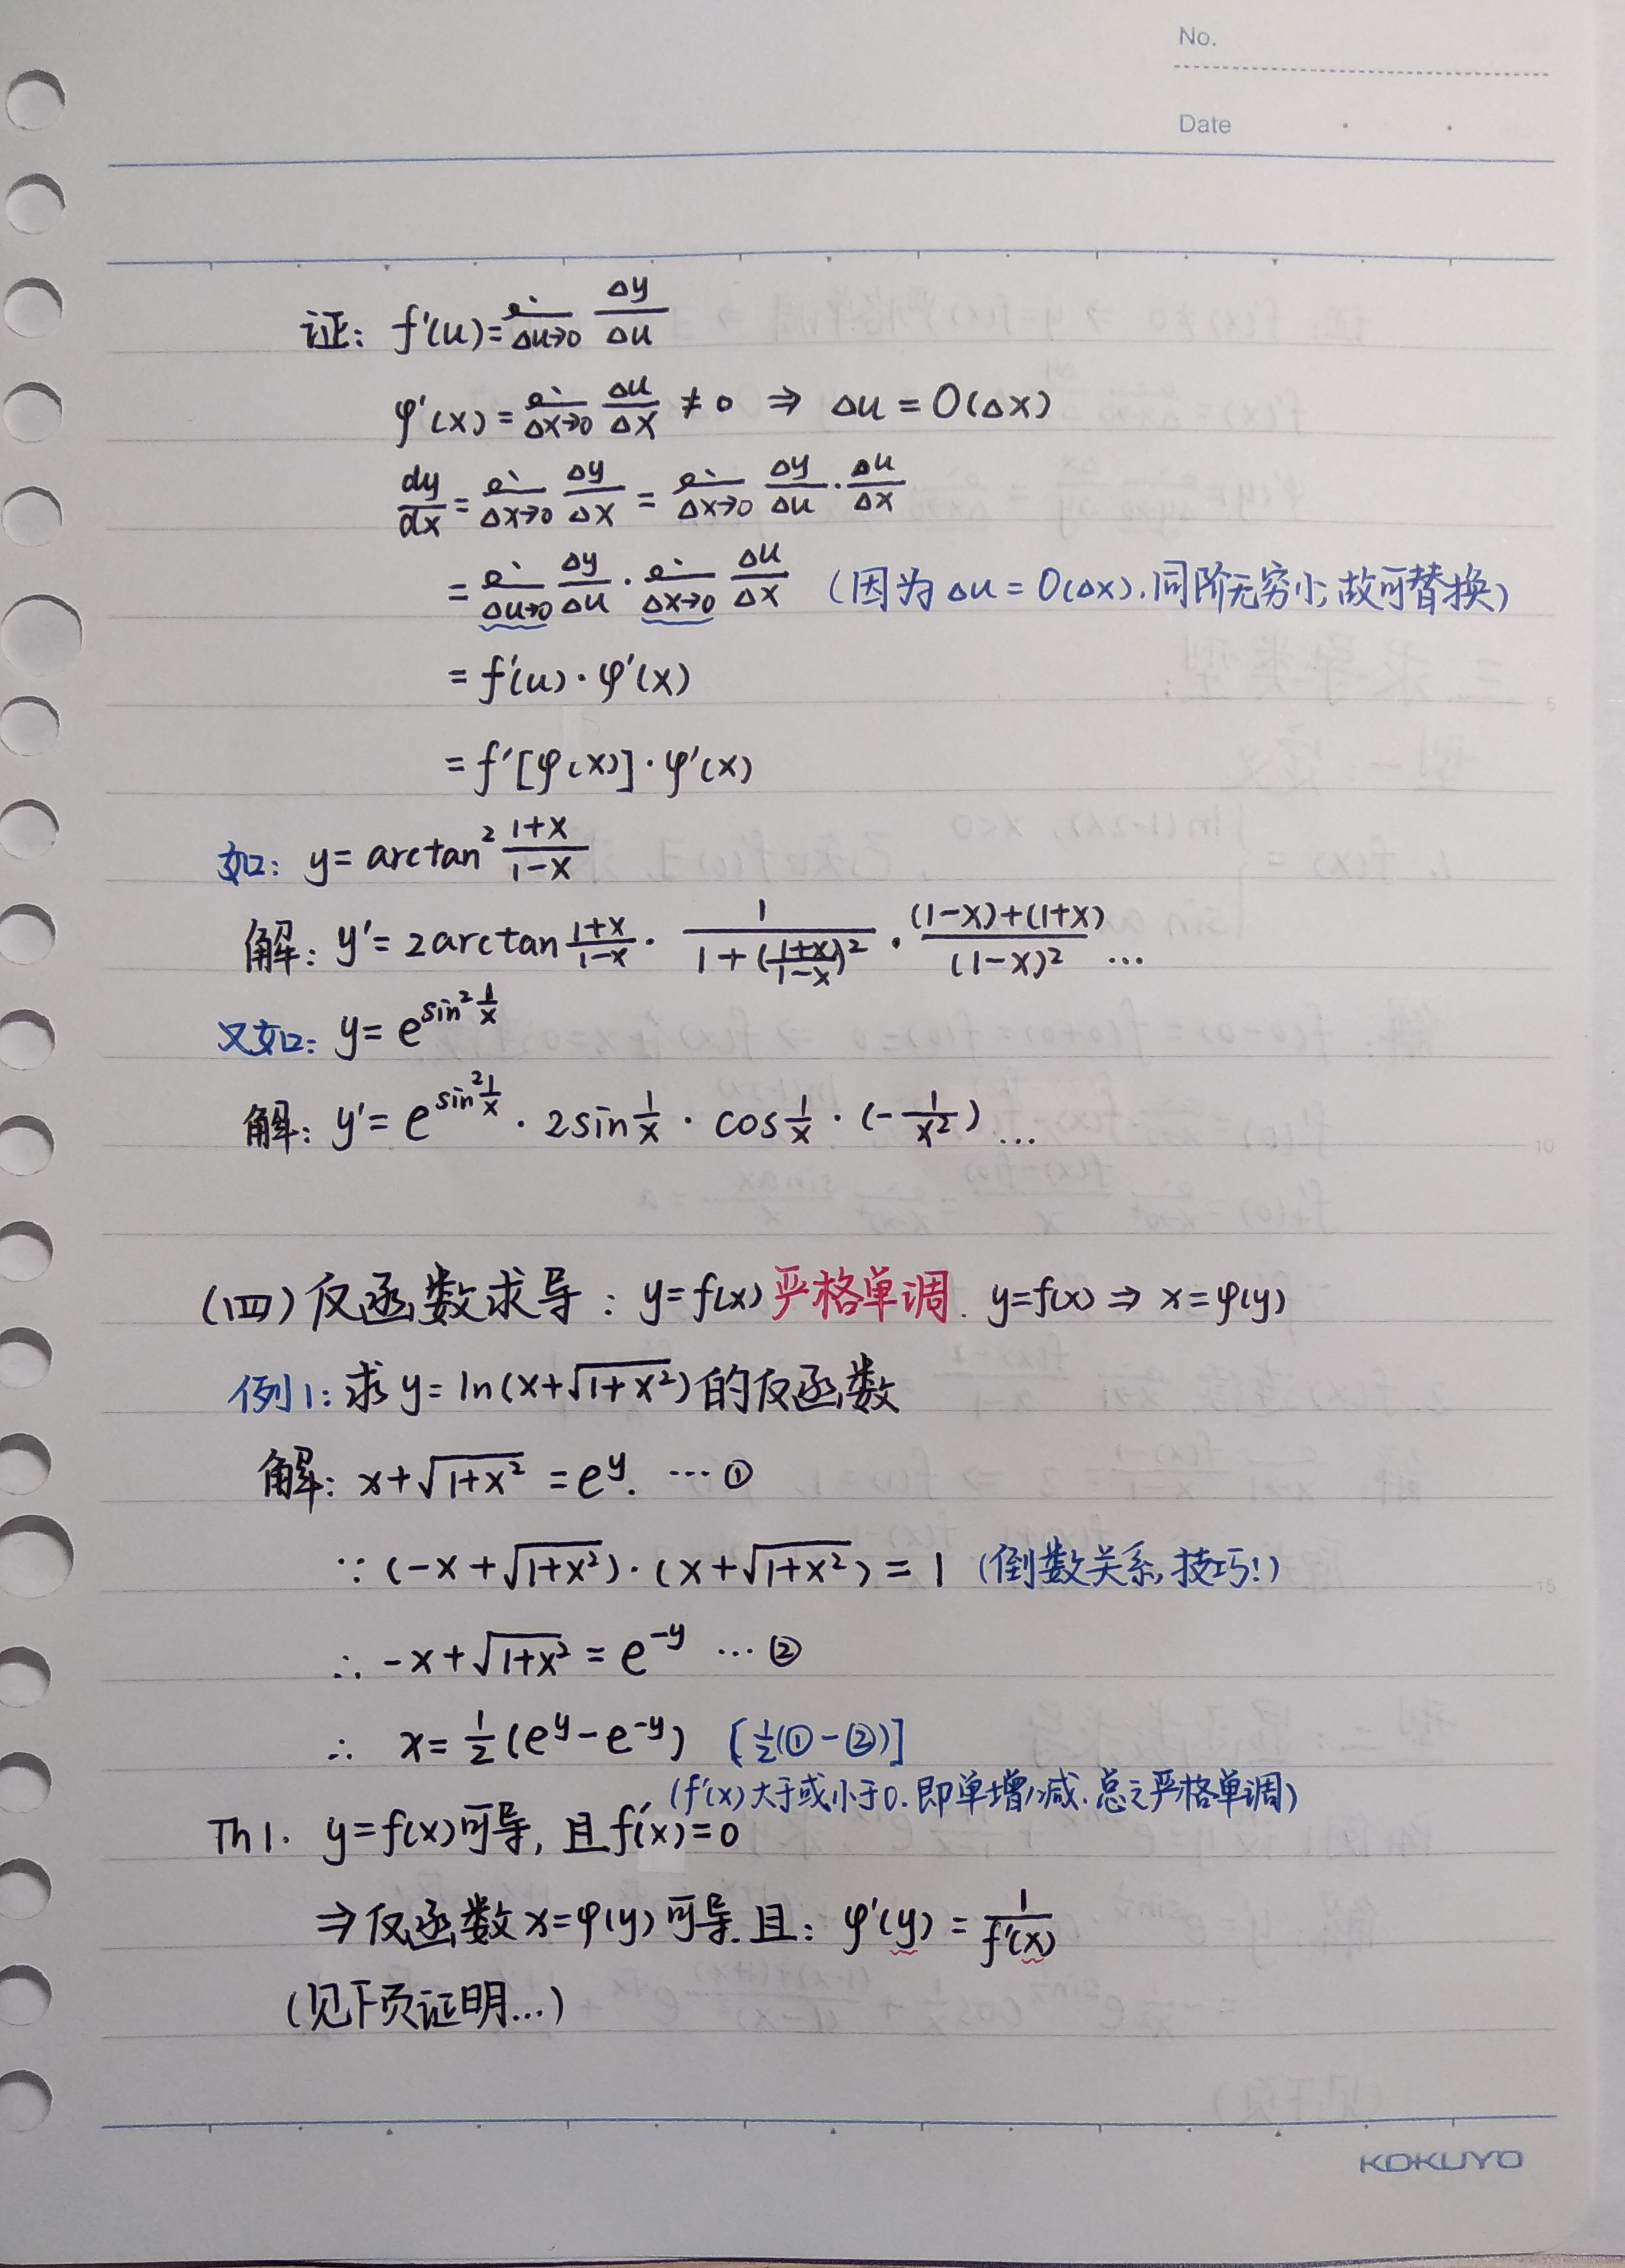 No.
Date
证: f'(u)=lim Δu→0 Δy/Δu
φ'(x)=lim Δx→0 Δu/Δx ≠0 ⇒ Δu=O(Δx)
dy/dx=lim Δx→0 Δy/Δx=lim Δx→0 Δy/Δu·Δu/Δx
=lim Δu→0 Δy/Δu·lim Δx→0 Δu/Δx (因为Δu=O(Δx).同阶无穷小,故可替换)
=f'(u)·φ'(x)
=f'[φ(x)]·φ'(x)
如: y=arctan²(1+x)/(1-x)
解: y'=2arctan(1+x)/(1-x)·1/(1+((1+x)/(1-x))²)·((1-x)+(1+x))/(1-x)² …
又如: y=e^(sin²(1/x))
解: y'=e^(sin²(1/x))·2sin(1/x)·cos(1/x)·(-1/x²) …
(四)反函数求导: y=f(x)严格单调. y=f(x)⇒x=φ(y)
例1: 求y=ln(x+√(1+x²))的反函数
解: x+√(1+x²)=e^y. …①
∵(-x+√(1+x²))·(x+√(1+x²))=1 (倒数关系,技巧!)
∴-x+√(1+x²)=e^(-y) …②
∴ x=1/2(e^y-e^(-y)) [1/2(①-②)]
(f'(x)大于或小于0.即单增/减.总之严格单调)
Th1. y=f(x)可导, 且f'(x)=0
⇒反函数x=φ(y)可导.且: φ'(y)=1/f'(x)
(见下页证明…)
KOKUYO